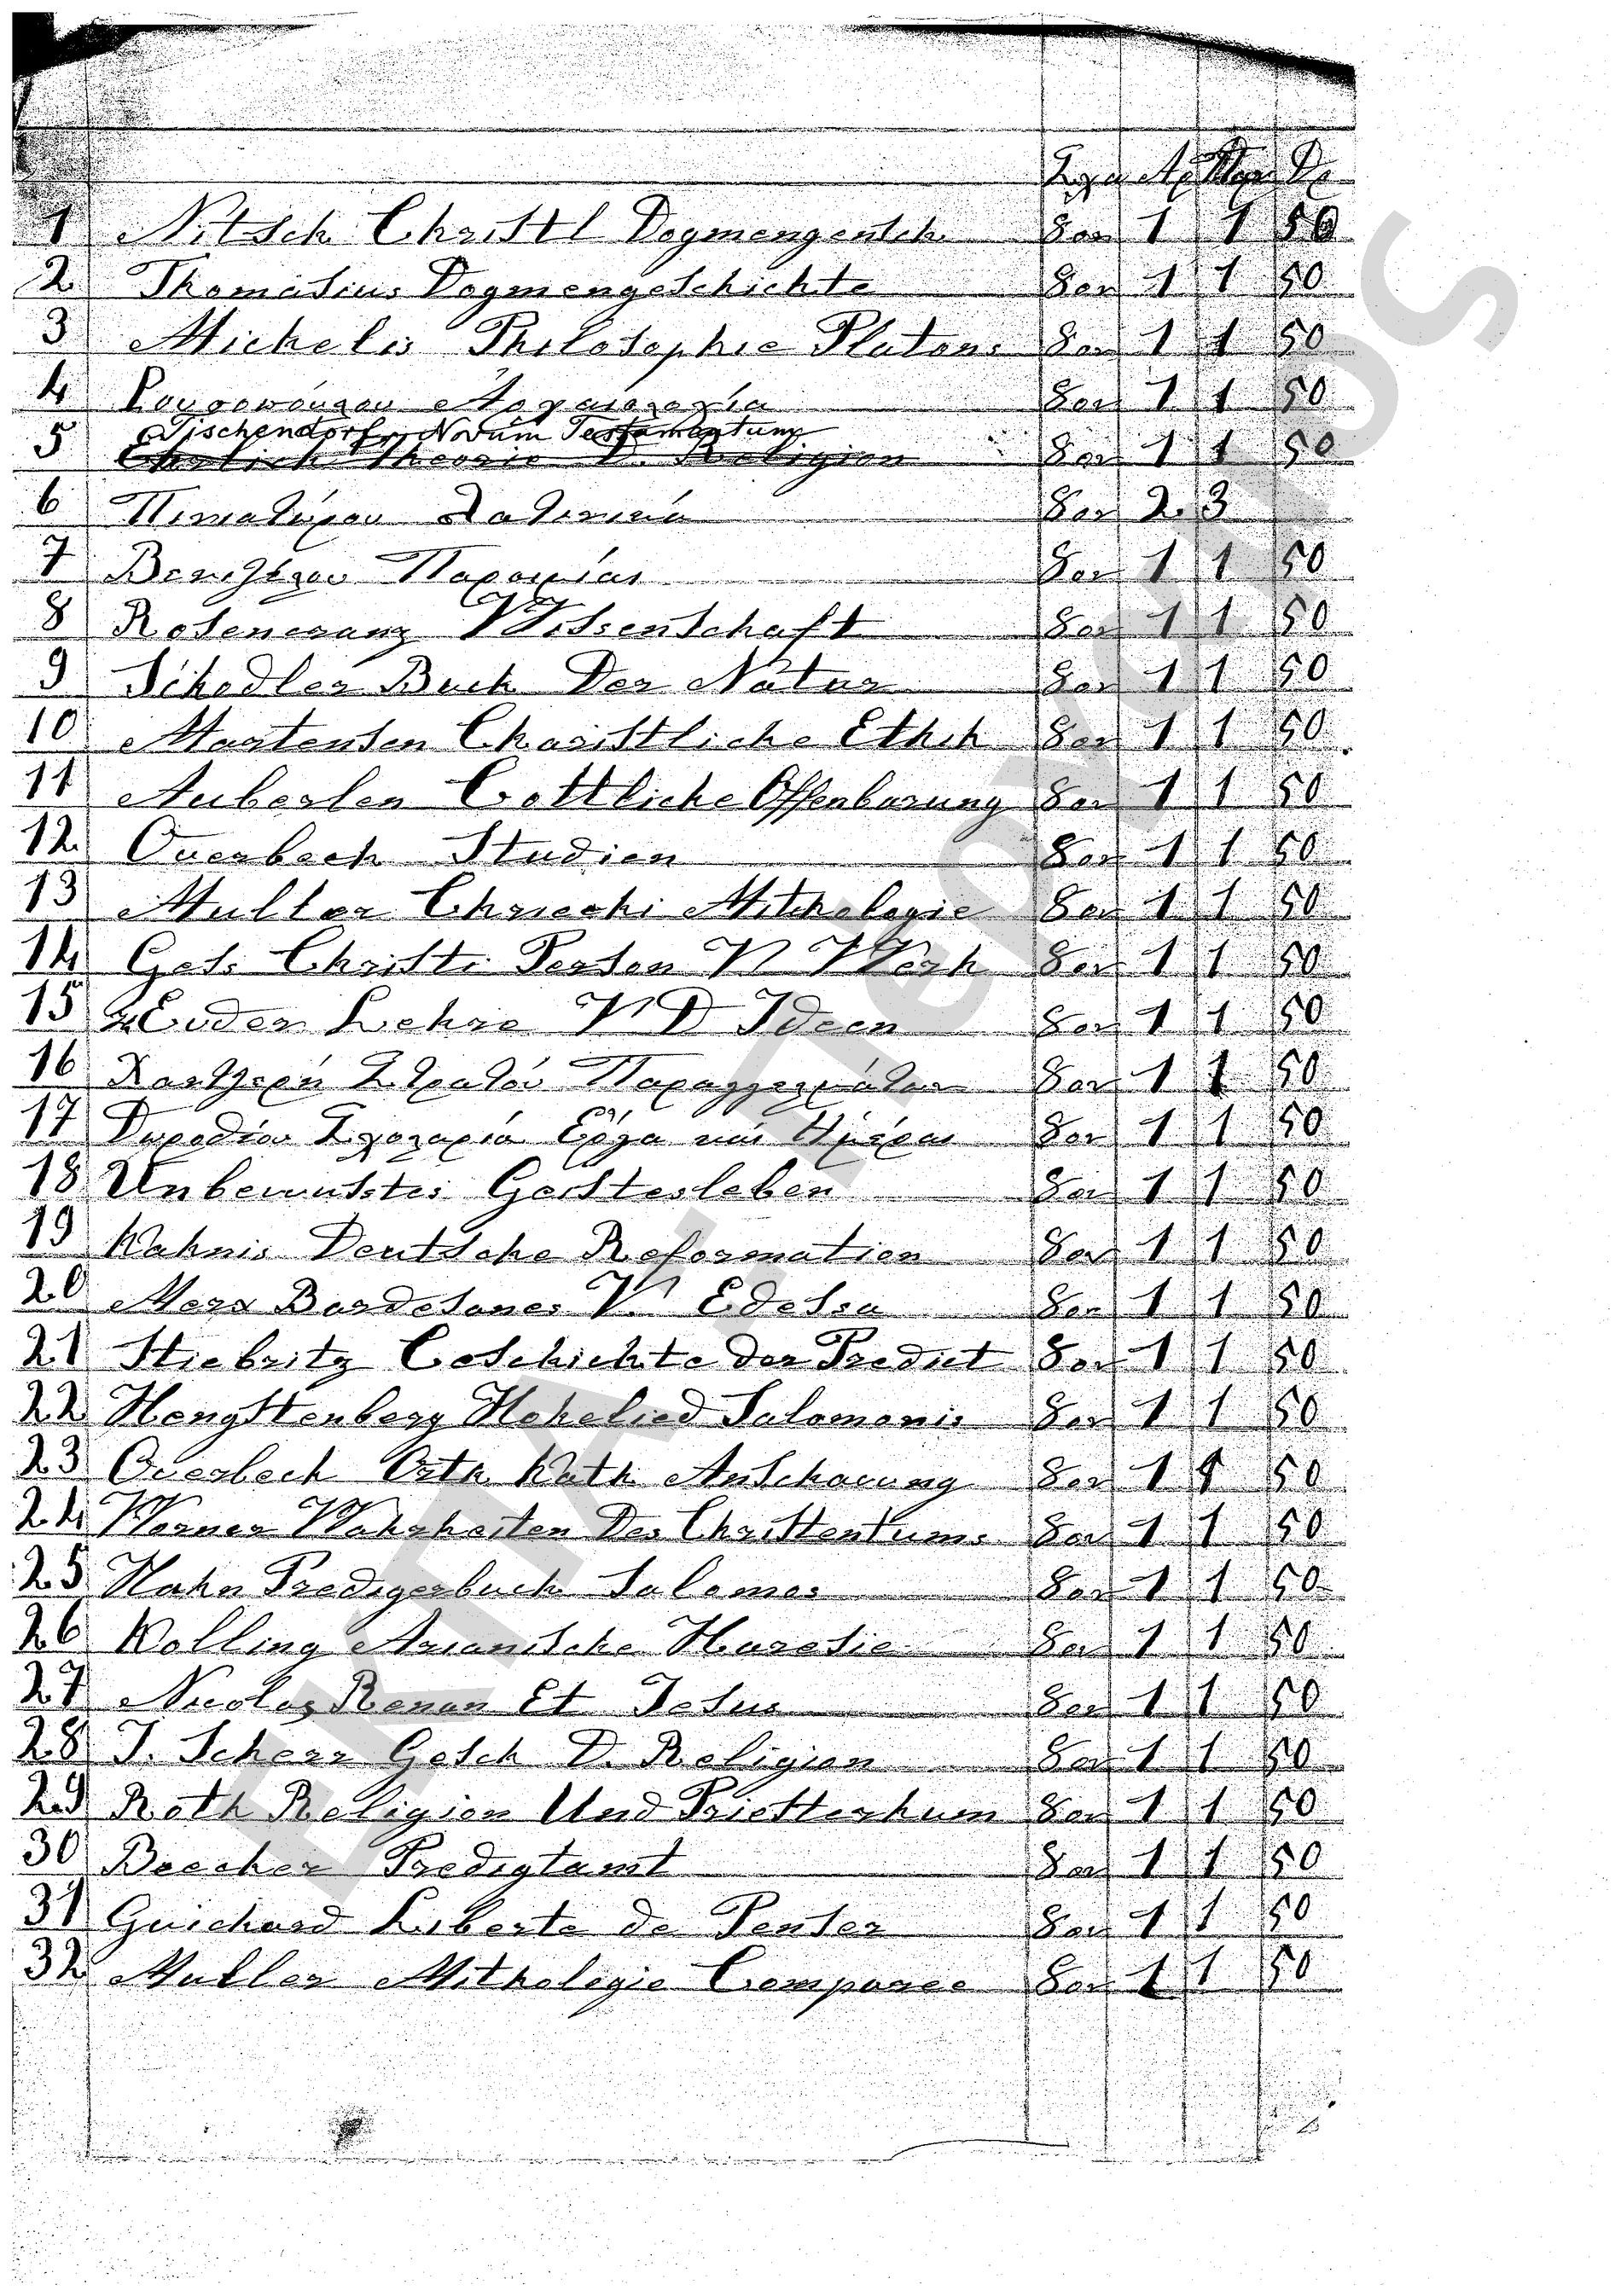 Σχημ Αρ Δραχ Λε
1 Nitsch Christl Dogmengentsch 8ον 1 1 50
2 Thomasius Dogmengeschichte 8ον 1 1 50
3 Michelis Philosophie Platons 8ον 1 1 50
4 Κουμανούδου 8ον 1 1 50
Tischendorf Novum Testamentum
5 Ehrlich Theorie D. Religion 8ον 1 1 50
6 8ον 2 3
7 Βενιζέλου Παροιμίαι 8ον 1 1 50
8 Rosencranz Wissenschaft 8ον 1 1 50
9 Schedler Buch Der Natur 8ον 1 1 50
10 Martensen Christliche Ethik 8ον 1 1 50
11 Auberlen Gottliche Offenbarung 8ον 1 1 50
12 Overbeck Studien 8ον 1 1 50
13 Muller Mithologie 8ον 1 1 50
14 Ges. Christi Person V Werk 8ον 1 1 50
15 Lehre V D Ideen 8ον 1 1 50
16 8ον 1 1 50
17 Ἔργα καὶ Ἡμέραι 8ον 1 1 50
18 Unbewusstes Geistesleben 8ον 1 1 50
19 Kahnis Deutsche Reformation 8ον 1 1 50
20 Merx Bardesanes V. Edessa 8ον 1 1 50
21 Stiebritz Geschichte der Predict 8ον 1 1 50
22 Hengstenberg Hohelied Salomonis 8ον 1 1 50
23 Overbeck Orth Kath Anschauung 8ον 1 1 50
24 Werner Wahrheiten Des Christentums 8ον 1 1 50
25 Hahn Predigerbuch Salomos 8ον 1 1 50
26 Kolling Arianische Haresie 8ον 1 1 50
27 Nicolas Renan Et Jesus 8ον 1 1 50
28 J. Scherr Gesch D. Religion 8ον 1 1 50
29 Roth Religion Und Priesterhum 8ον 1 1 50
30 Beecher Predigtamt 8ον 1 1 50
31 Guichard Liberte de Penser 8ον 1 1 50
32 Muller Mithologie Comparee 8ον 1 1 50